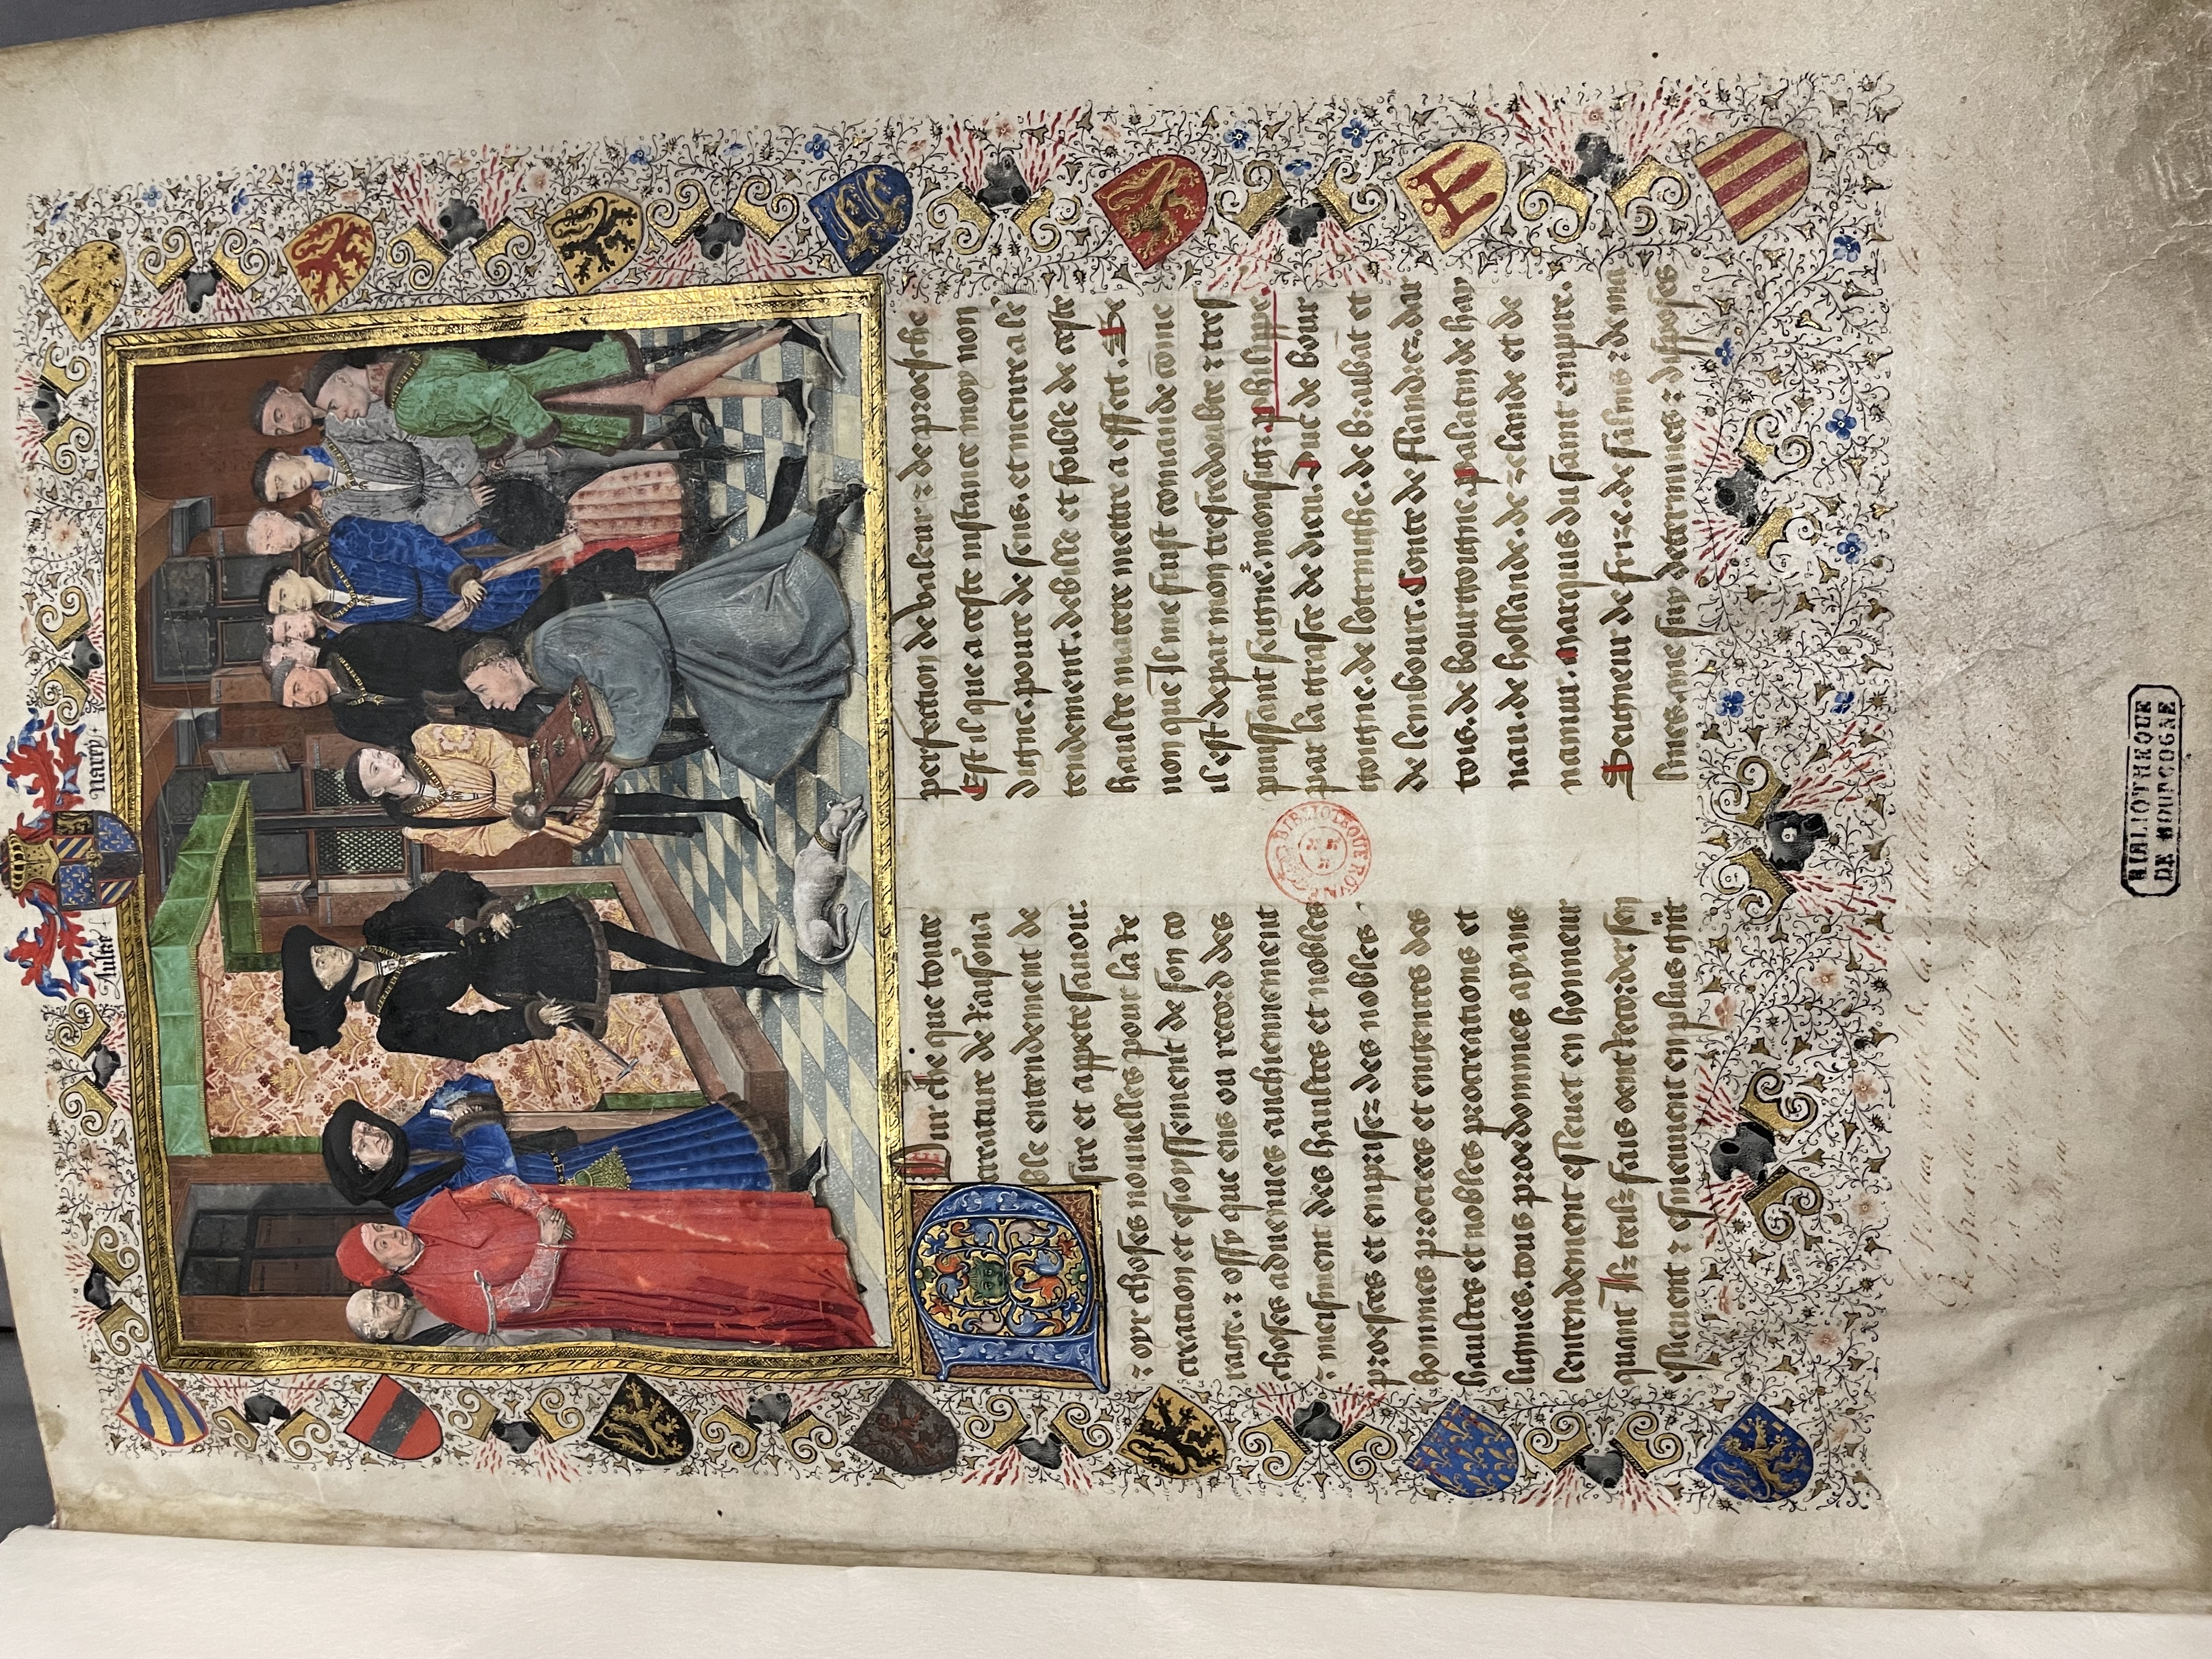 Aultre Narey
Pour che que toute
creature de raison a
ble entendement de
sire et appete sauour.
⁊ oyr choses nouuelles pour la re
creation et esioyssement de son co
rage. ⁊ ossy que ens ou recors des
choses aduenues anchiennement
⁊ meisment des haultes et nobles
proesses et emprisez des nobles
hommes procrees et engenres des
haultes et nobles procreations et
lignies. tous proedommes ayans
lentendement esleuet en honneur
quant Ilz telz fais oent recorder sen
eslieuent ⁊ esmeuuent en plus grāt
perfection de valeur ⁊ de proesche
Est il que a ceste instance moy non
digne. poure de sens. et meure a lē
tendement. debille et foible de ceste
haulte matere mettre a effect. Se
non que Il me fuist comande come
il est de par mon tresredoubte ⁊ tres
puissant seigne. monsigr phelippe.
par la grasce de dieu. Duc de bour
goigne. de lotringhe. de brabāt et
de lembourc. Conte de flandrez. dar
tois. de bourgoigne. palatin de hay
nau. de hollande. de zelande et de
namur. marquis du saint empire.
Seigneur de frize. de salins ⁊ de ma
lines. me suy determines ⁊ disposes
BIBLIOTEQUE ROYALE
BIBLIOTHEQUE
DE BOURGOGNE